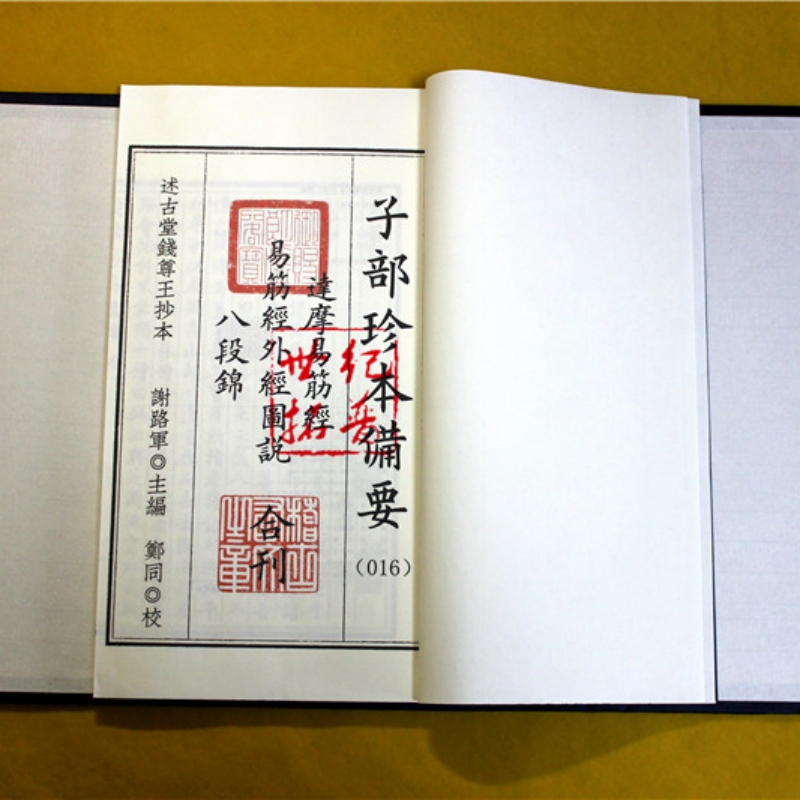 子部珍本備要
（016）
達摩易筋經
易筋經外經圖說
八段錦
合刊
述古堂錢尊王抄本
謝路軍◎主編 鄭同◎校